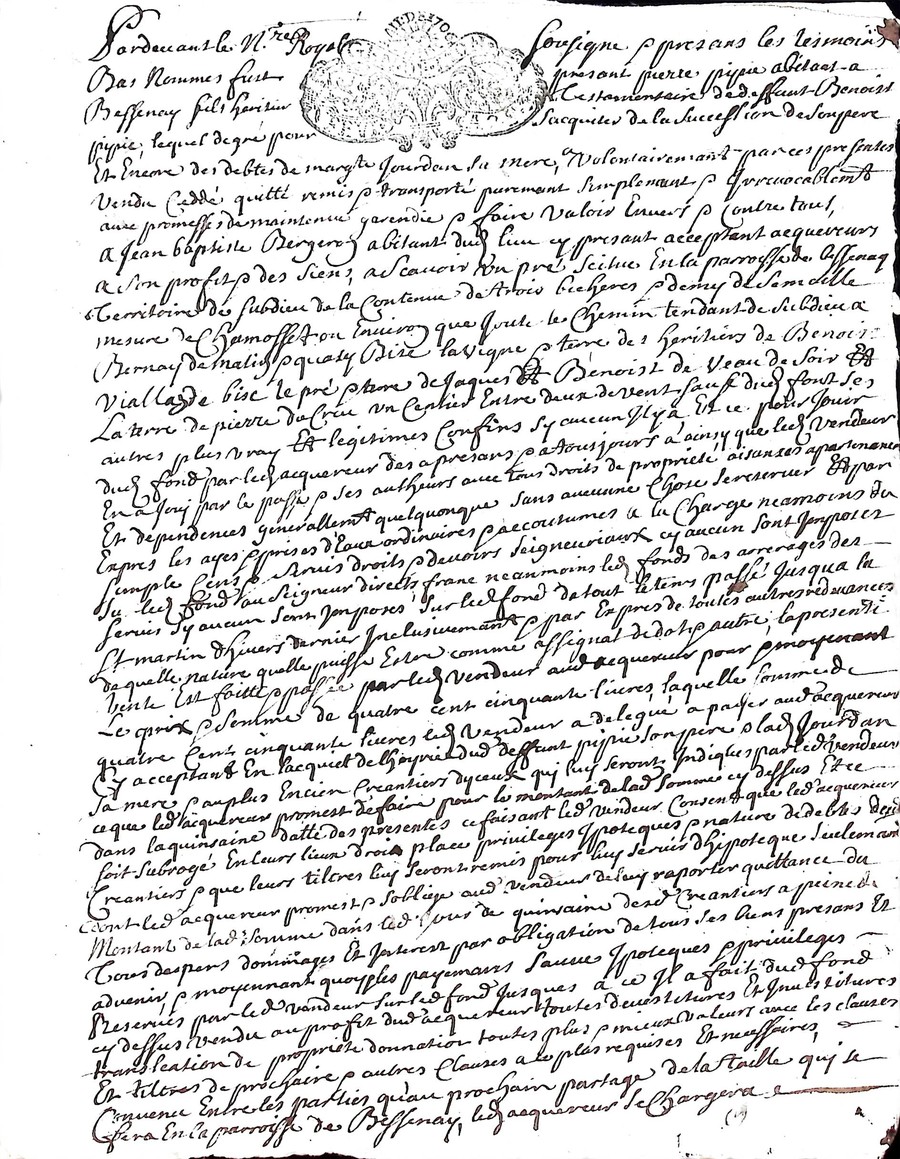 Pardevant le N.re Royal Sousigne & presans les tesmoins
Bas Nommes fust present pierre pipie abitant a
Bessenay fils heritier Testamentaire de deffunt Benoist
pipie, lequel de gré pour s'acquiter de la succession de son pere
Et Encore des debtes de margte Jourdan sa mere, a Volontairemant par ces presentes
Vendu Ceddé quitté remis & transporté puremant simplemant & Irrevocablemt
avec promesses de maintenue garendie & faire valoir Envers & Contre tous,
a Jean baptiste Bergeron abitant dud lieu cy presant acceptant acquereurs
a son profit & des siens, a scavoir Un pré Scitue En la parroisse de bessenay
Territoire de subdieu de la Contenue de trois bicheres & demy de semaille
mesure de Chamosset ou Environ que Joute le Chemin tendant de subdieu a
Bernay de matin & quasy Bize la vigne & terre des heritiers de Benoist
Viallon de bise le pré & terre de Jaques Benoist de Veau de soir Et
La terre de pierre de Crée un Centier Entre deux de vent sauf dud font ses
autres plus vray Et legitimes Confins sy aucun Il y a Et ce pour Jouir
dud fond par led acquereur des apresans & a tousjours a ainsy que led vendeur
En a Joui par le passé & ses autheurs avec tous droits de propriete aisances apartenances
Et dependences generallemt quelquonque sans aucune Chose se reserver Et par
Expres les ayes & prises d'Eaux ordinaires & accoutumes a la Charge neamoins du
simple Cens & servis droits & devoirs seigneuriaux sy aucun sont Imposez
su led fond au seigneur direct, franc neanmoins led fonds des arrerages des
servis sy aucun sont Imposés sur led fond de tout le tems passé Jusqua la
St martin d'hivers dernier Inclusivemant & par Expres de toutes autres redevances
de quelle nature quelle puisse Estre comme assignat de dot & autre, la presente
vente Est faitte & passée par led vendeur aud acquereur pour & moyenant
Le prix & somme de quatre cent cinquante livres, laquelle somme de
quatre Cent cinquante livres led vendeur a delegué a payer aud acquereur
Cy acceptant En lacquit de l'hoyrie dud deffunt pipie son pere & lad Jourdan
sa mere & au plus Encien Creantiers dyceux qui luy seront Indiqués par led vendeur
ce que led acquereur promest de faire pour le montant de lad somme cy dessus Et ce
dans la quinsaine datte des presentes ce faisant led vendeur Consent que led acquereur
soit subrogé En leurs lieux droits place privileges Ipoteques & nature de debtes desd
Creantiers & que leurs tiltres luy seront remis pour luy servir d'hipoteque seulemant
dont led acquereur promest & soblige aud vendeur de luy raporter quittance du
Montant de lad somme dans led jour de quinsaine desd Creantiers a peine de
Tous despens dommages Et Interest par obligation de tous ses biens presans Et
advenir, & moyennant quoy & les payemans sauve Ipoteques & privileges
Reservés par led vendeur sur led fond Jusques a ce Il a fait dud fond
cy dessus vendu au profit dud acquereur toutes devestitures Et Investitures
translation de propriete donnation toutes plus & mieux Valeurs avec les clauses
Et tiltres de prochaire & autres Clauses a ce plus requises Et necessaires,
Convenu Entre les parties qu'au prochain partage de la taille qui se
fera En la parroisse de Bessenay, led acquereur se Chargera